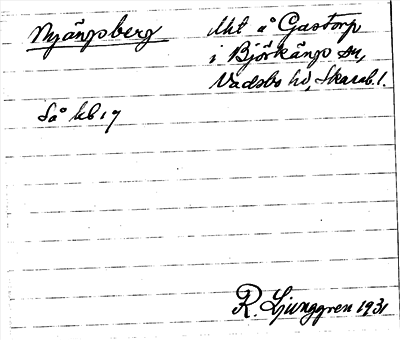 Nyängsberg
Lht å Gastorp
i Björkängs sn,
Vadsbo hd, Skarab. l.
Så kb 17
R. Ljunggren 1931